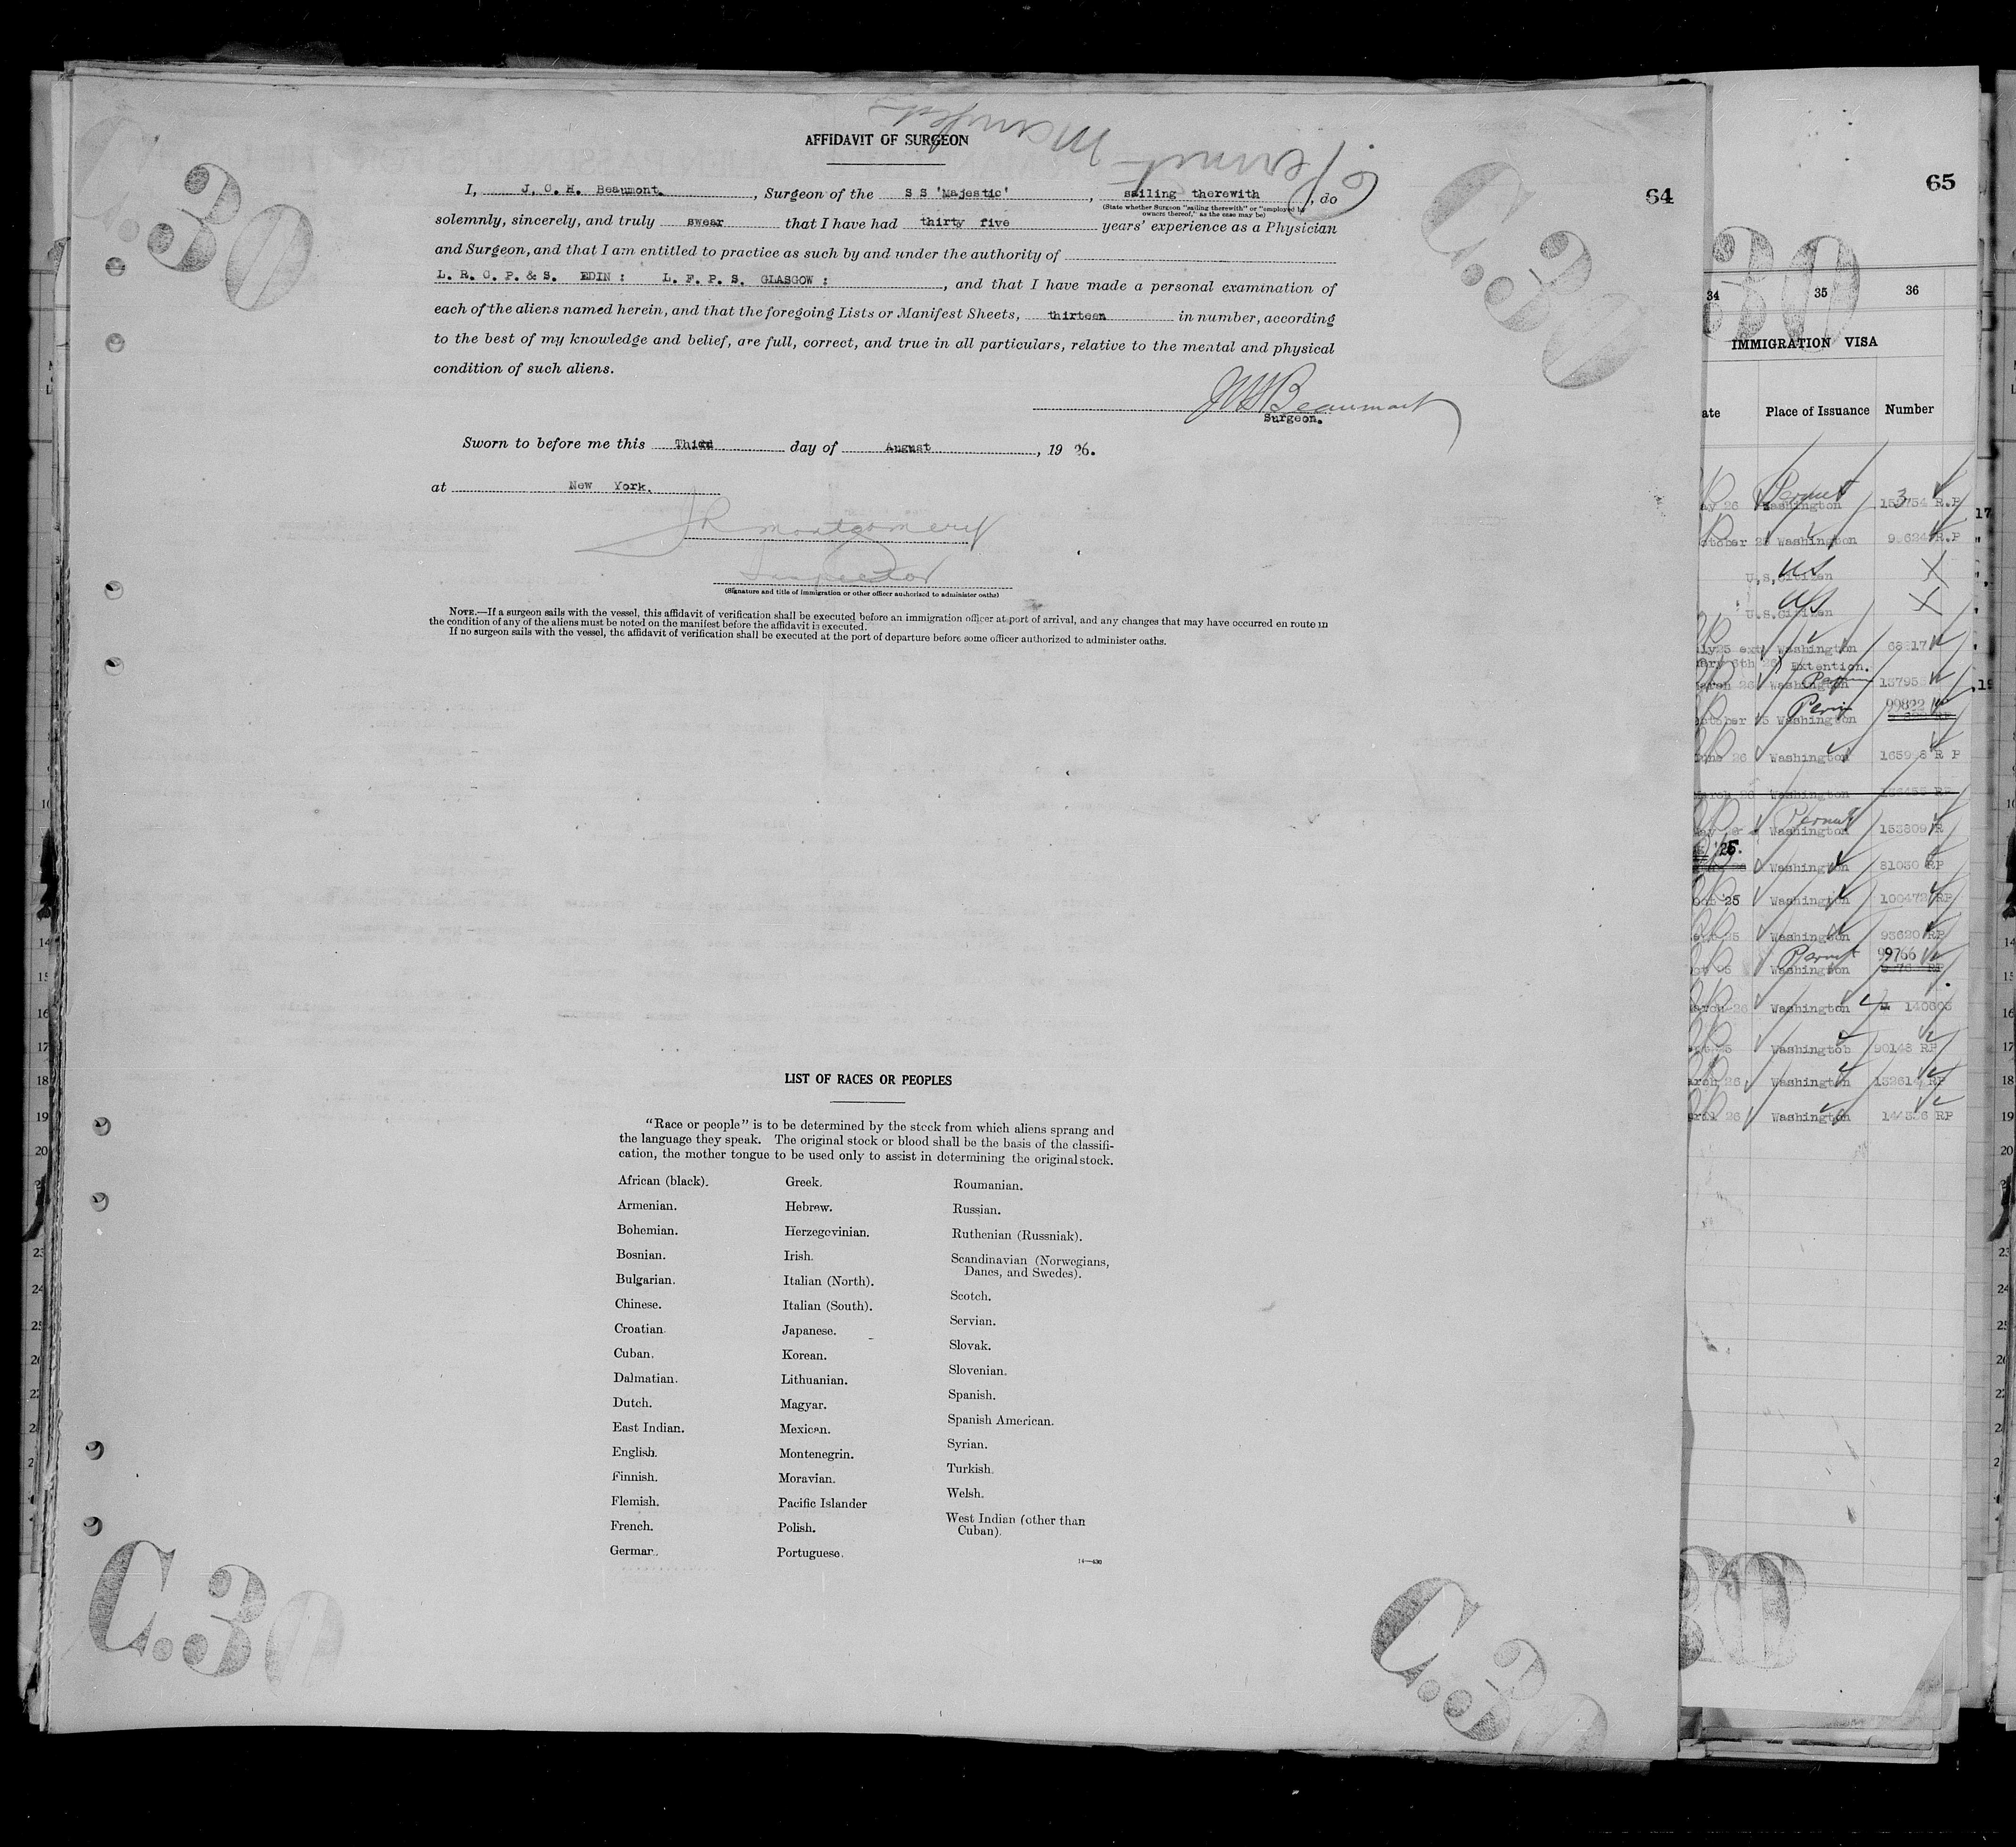 AFFIDAVIT OF SURGEON
64
I, J. O. H. Beaumont. , Surgeon of the S S 'Majestic' , sailing therewith , do
(State whether Surgeon "sailing therewith" or "employed by
owners thereof," as the case may be)
solemnly, sincerely, and truly swear that I have had thirty five years' experience as a Physician
and Surgeon, and that I am entitled to practice as such by and under the authority of
L. R. C. P. & S. EDIN : L. F. P. S. GLASGOW : , and that I have made a personal examination of
each of the aliens named herein, and that the foregoing Lists or Manifest Sheets, thirteen in number, according
to the best of my knowledge and belief, are full, correct, and true in all particulars, relative to the mental and physical
condition of such aliens.
Beaumont
Surgeon.
Sworn to before me this Third day of August , 19 26.
at New York.
Montgomery
Inspector
(Signature and title of immigration or other officer authorized to administer oaths)
NOTE.—If a surgeon sails with the vessel, this affidavit of verification shall be executed before an immigration officer at port of arrival, and any changes that may have occurred en route in
the condition of any of the aliens must be noted on the manifest before the affidavit is executed.
If no surgeon sails with the vessel, the affidavit of verification shall be executed at the port of departure before some officer authorized to administer oaths.
Permit
Manifest
C.30
C.30
LIST OF RACES OR PEOPLES
"Race or people" is to be determined by the stock from which aliens sprang and
the language they speak. The original stock or blood shall be the basis of the classifi-
cation, the mother tongue to be used only to assist in determining the original stock.
African (black).
Armenian.
Bohemian.
Bosnian.
Bulgarian.
Chinese.
Croatian.
Cuban.
Dalmatian.
Dutch.
East Indian.
English.
Finnish.
Flemish.
French.
German.
Greek.
Hebrew.
Herzegovinian.
Irish.
Italian (North).
Italian (South).
Japanese.
Korean.
Lithuanian.
Magyar.
Mexican.
Montenegrin.
Moravian.
Pacific Islander
Polish.
Portuguese.
Roumanian.
Russian.
Ruthenian (Russniak).
Scandinavian (Norwegians,
Danes, and Swedes).
Scotch.
Servian.
Slovak.
Slovenian.
Spanish.
Spanish American.
Syrian.
Turkish.
Welsh.
West Indian (other than
Cuban).
C.30
C.30
65
34 35 36
IMMIGRATION VISA
Place of Issuance Number
26 Permit Washington R.P
Washington R.P
U.S. Citizen US
U.S. Citizen US
Washington
Extention.
26 Washington
Permit 99822
Washington
26 Washington R P
Washington
Permit
Washington 153809 R
'25.
Washington 81030 RP
25 Washington 100472 RP
Washington 93620 RP
Permit 99766
Washington
26 Washington 140603
25 Washingtob 90148 RP
26 Washington 132614 RP
26 Washington RP